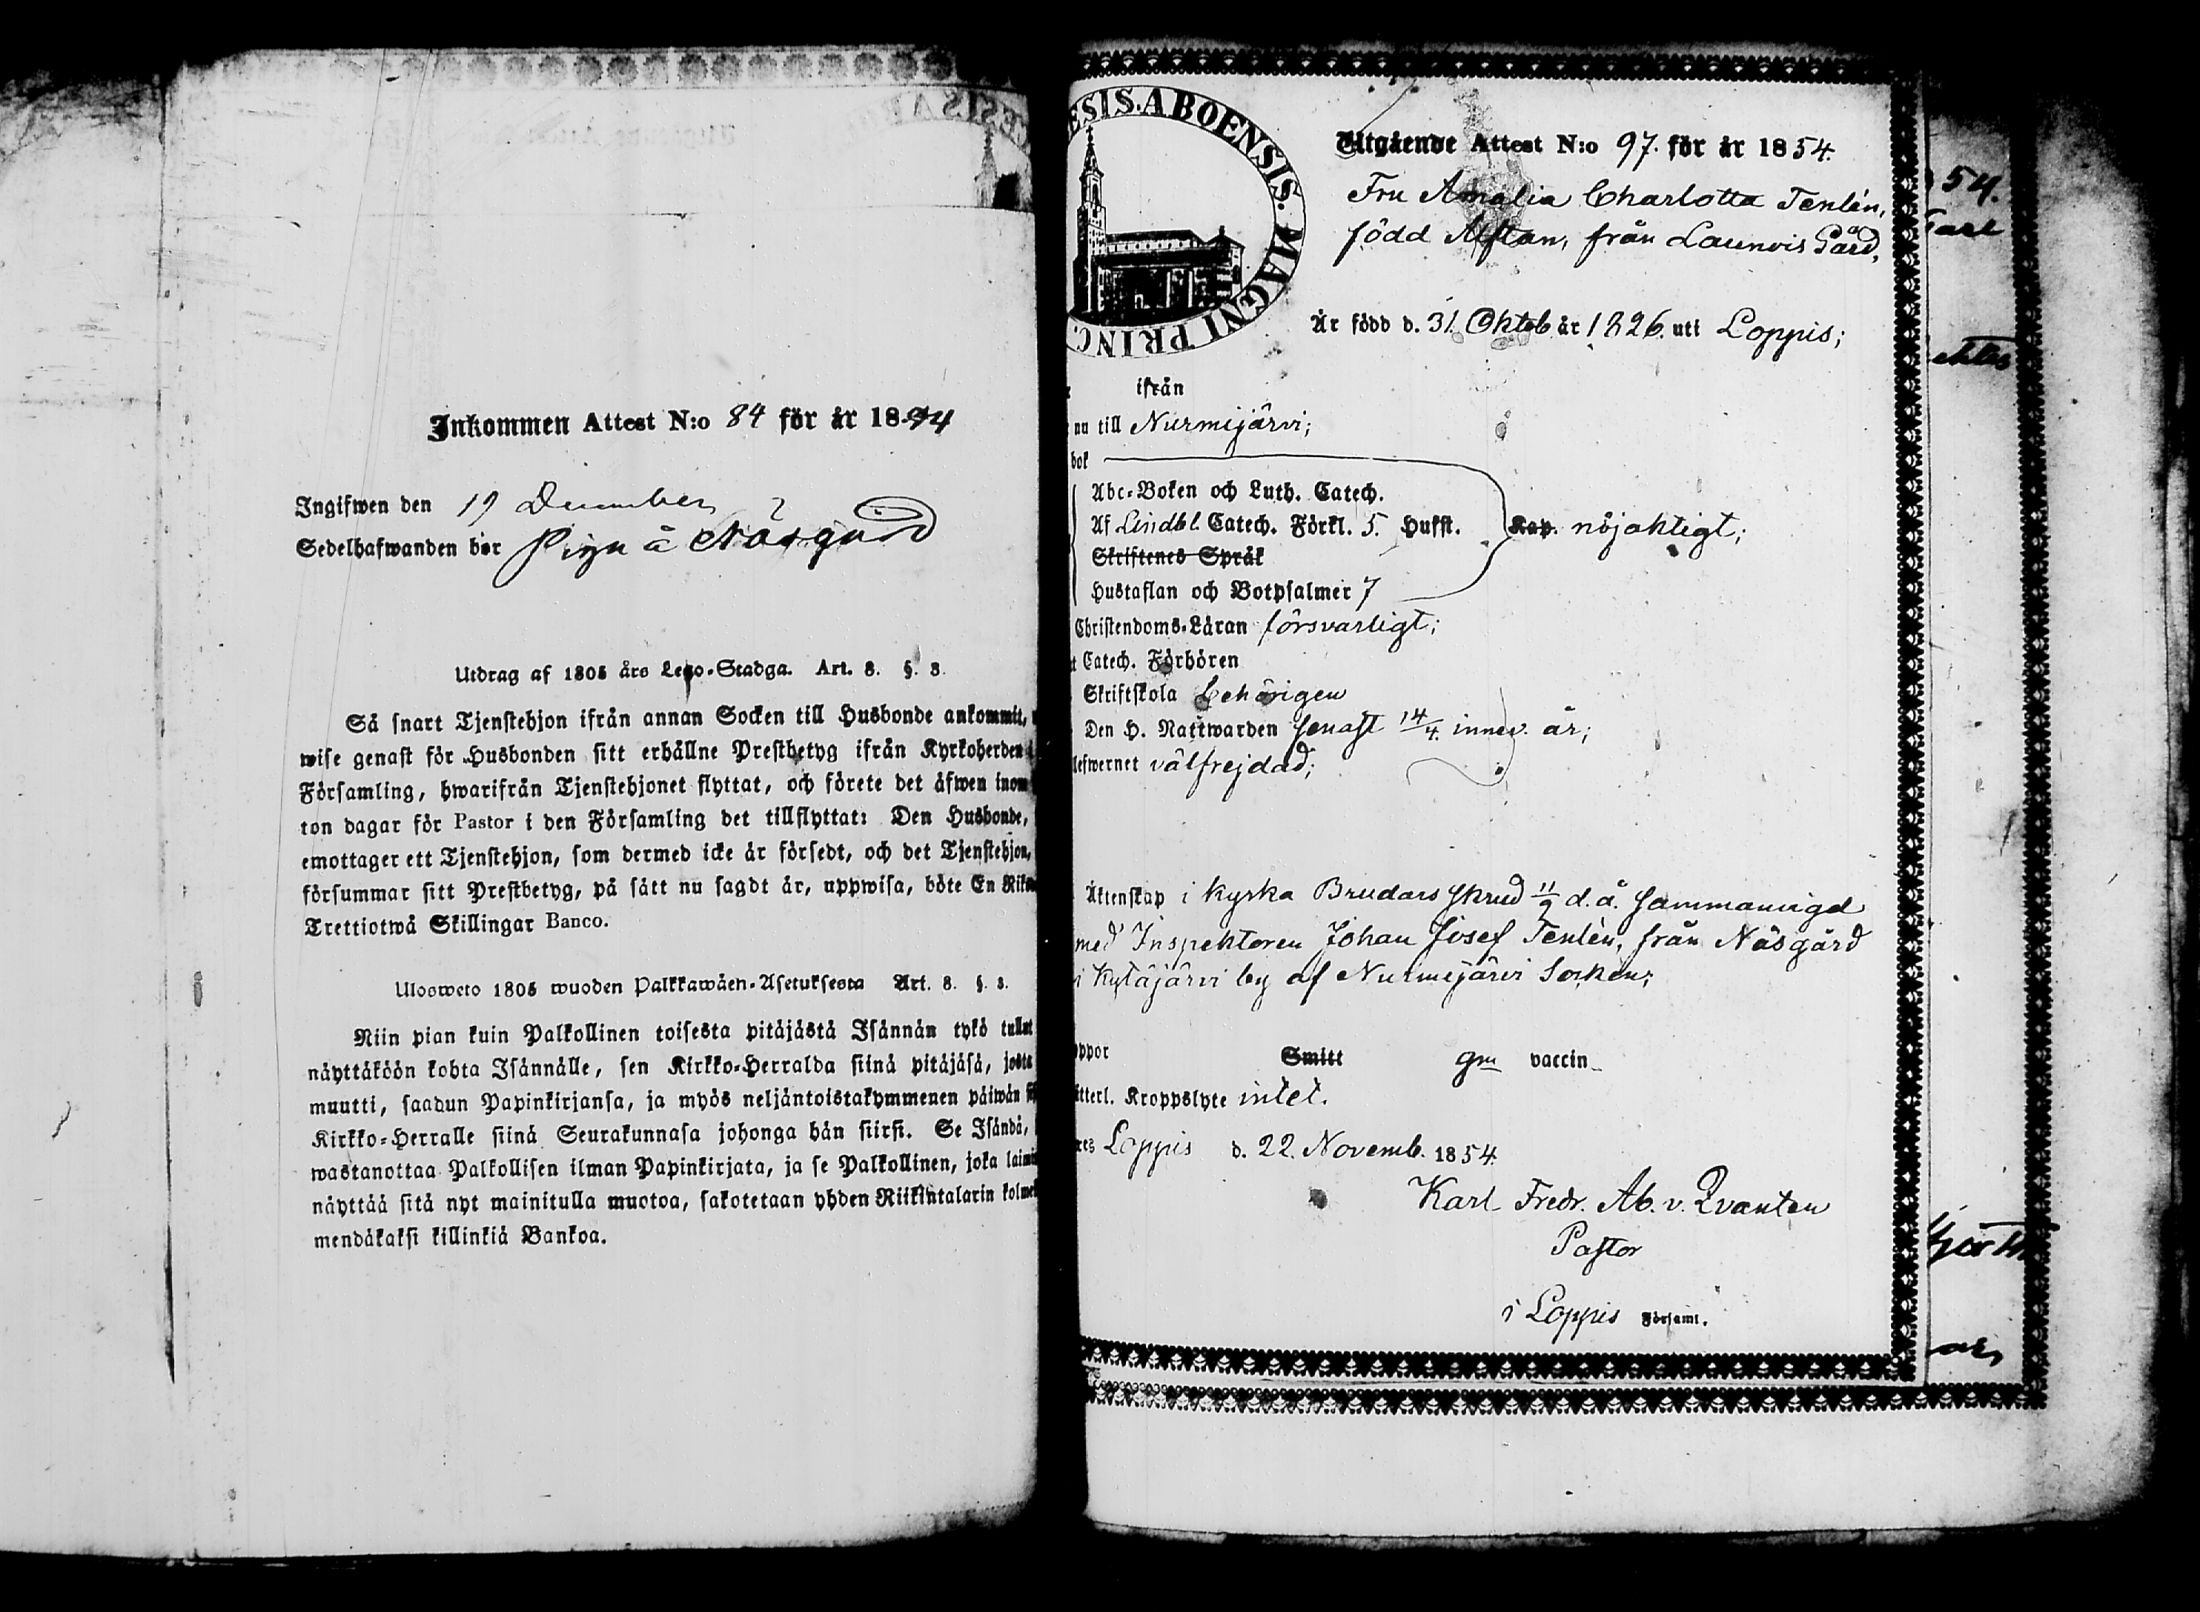 Inkommen Attest N:o 84 för år 18
Ingifwen den 19 December
Sedelhafwanden bor å Näsgård
Utdrag af 1805 års Lego-Stadga. Art. 8. §. 3.
Så snart Tjenstehjon ifrån annan Socken till Husbonde ankommit,
wise genast för Husbonden sitt erhållne Prestbetyg ifrån Kyrkoherden
Församling, hwarifrån Tjenstehjonet flyttat, och förete det äfwen inom
ton dagar för Pastor i den Församling det tillflyttat: Den Husbonde,
emottager ett Tjenstehjon, som dermed icke är försedt, och det Tjenstehjon,
försummar sitt Prestbetyg, på sätt nu sagdt är, uppwisa, böte En Riks
Trettiotwå Skillingar Banco.
Ulosweto 1805 wuoden Palkkawäen-Asetuksesta Art. 8. §. 3.
Niin pian kuin Palkollinen toisesta pitäjästä Isännän tykö tullut
näyttäköön kohta Isännälle, sen Kirkko-Herralda siinä pitäjäsä, josta
muutti, saadun Papinkirjansa, ja myös neljäntoistakymmenen päiwän
Kirkko-Herralle siinä Seurakunnasa johonga hän siirsi. Se Isändä,
wastanottaa Palkollisen ilman Papinkirjata, ja se Palkollinen, joka laimi
näyttää sitä nyt mainitulla muotoa, sakotetaan yhden Riikintalarin kolme
mendäkaksi killinkiä Bankoa.
ESIS. ABOENSIS. MAGNI PRINC.
Utgående Attest N:o 97. för år 1854.
Fru Amalia Charlotta Tenlén,
född Alftan, från Launois Gård,
Är född d. 31 Oktob år 1826. uti Loppis;
ifrån
nu till Nurmijärvi;
bok
Abc-Boken och Luth. Catech.
Af Lindbl. Catech. Förkl. 5. Hufst. Kap. nöjaktigt;
Skriftenes Språk
Hustaflan och Botpsalmer 7
Christendoms-Läran försvarligt;
Catech. Förhören
Skriftskola behörigen
Den H. Nattwarden senast 14/4. innev. år;
lefwernet välfrejdad;
Äktenskap i kyrka Brudars skrud 11/9 d.å. sammanvigd
med Inspektoren Johan Josef Tenlén, från Näsgård
i Kytäjärvi by af Nurmijärvi Socken;
ppor Smitt gm vaccin
tterl. Kroppslyte intet.
Loppis d. 22. Novemb. 1854.
Karl Fredr. Ab. v. Qvanten
Pastor
i Loppis Församl.
54.